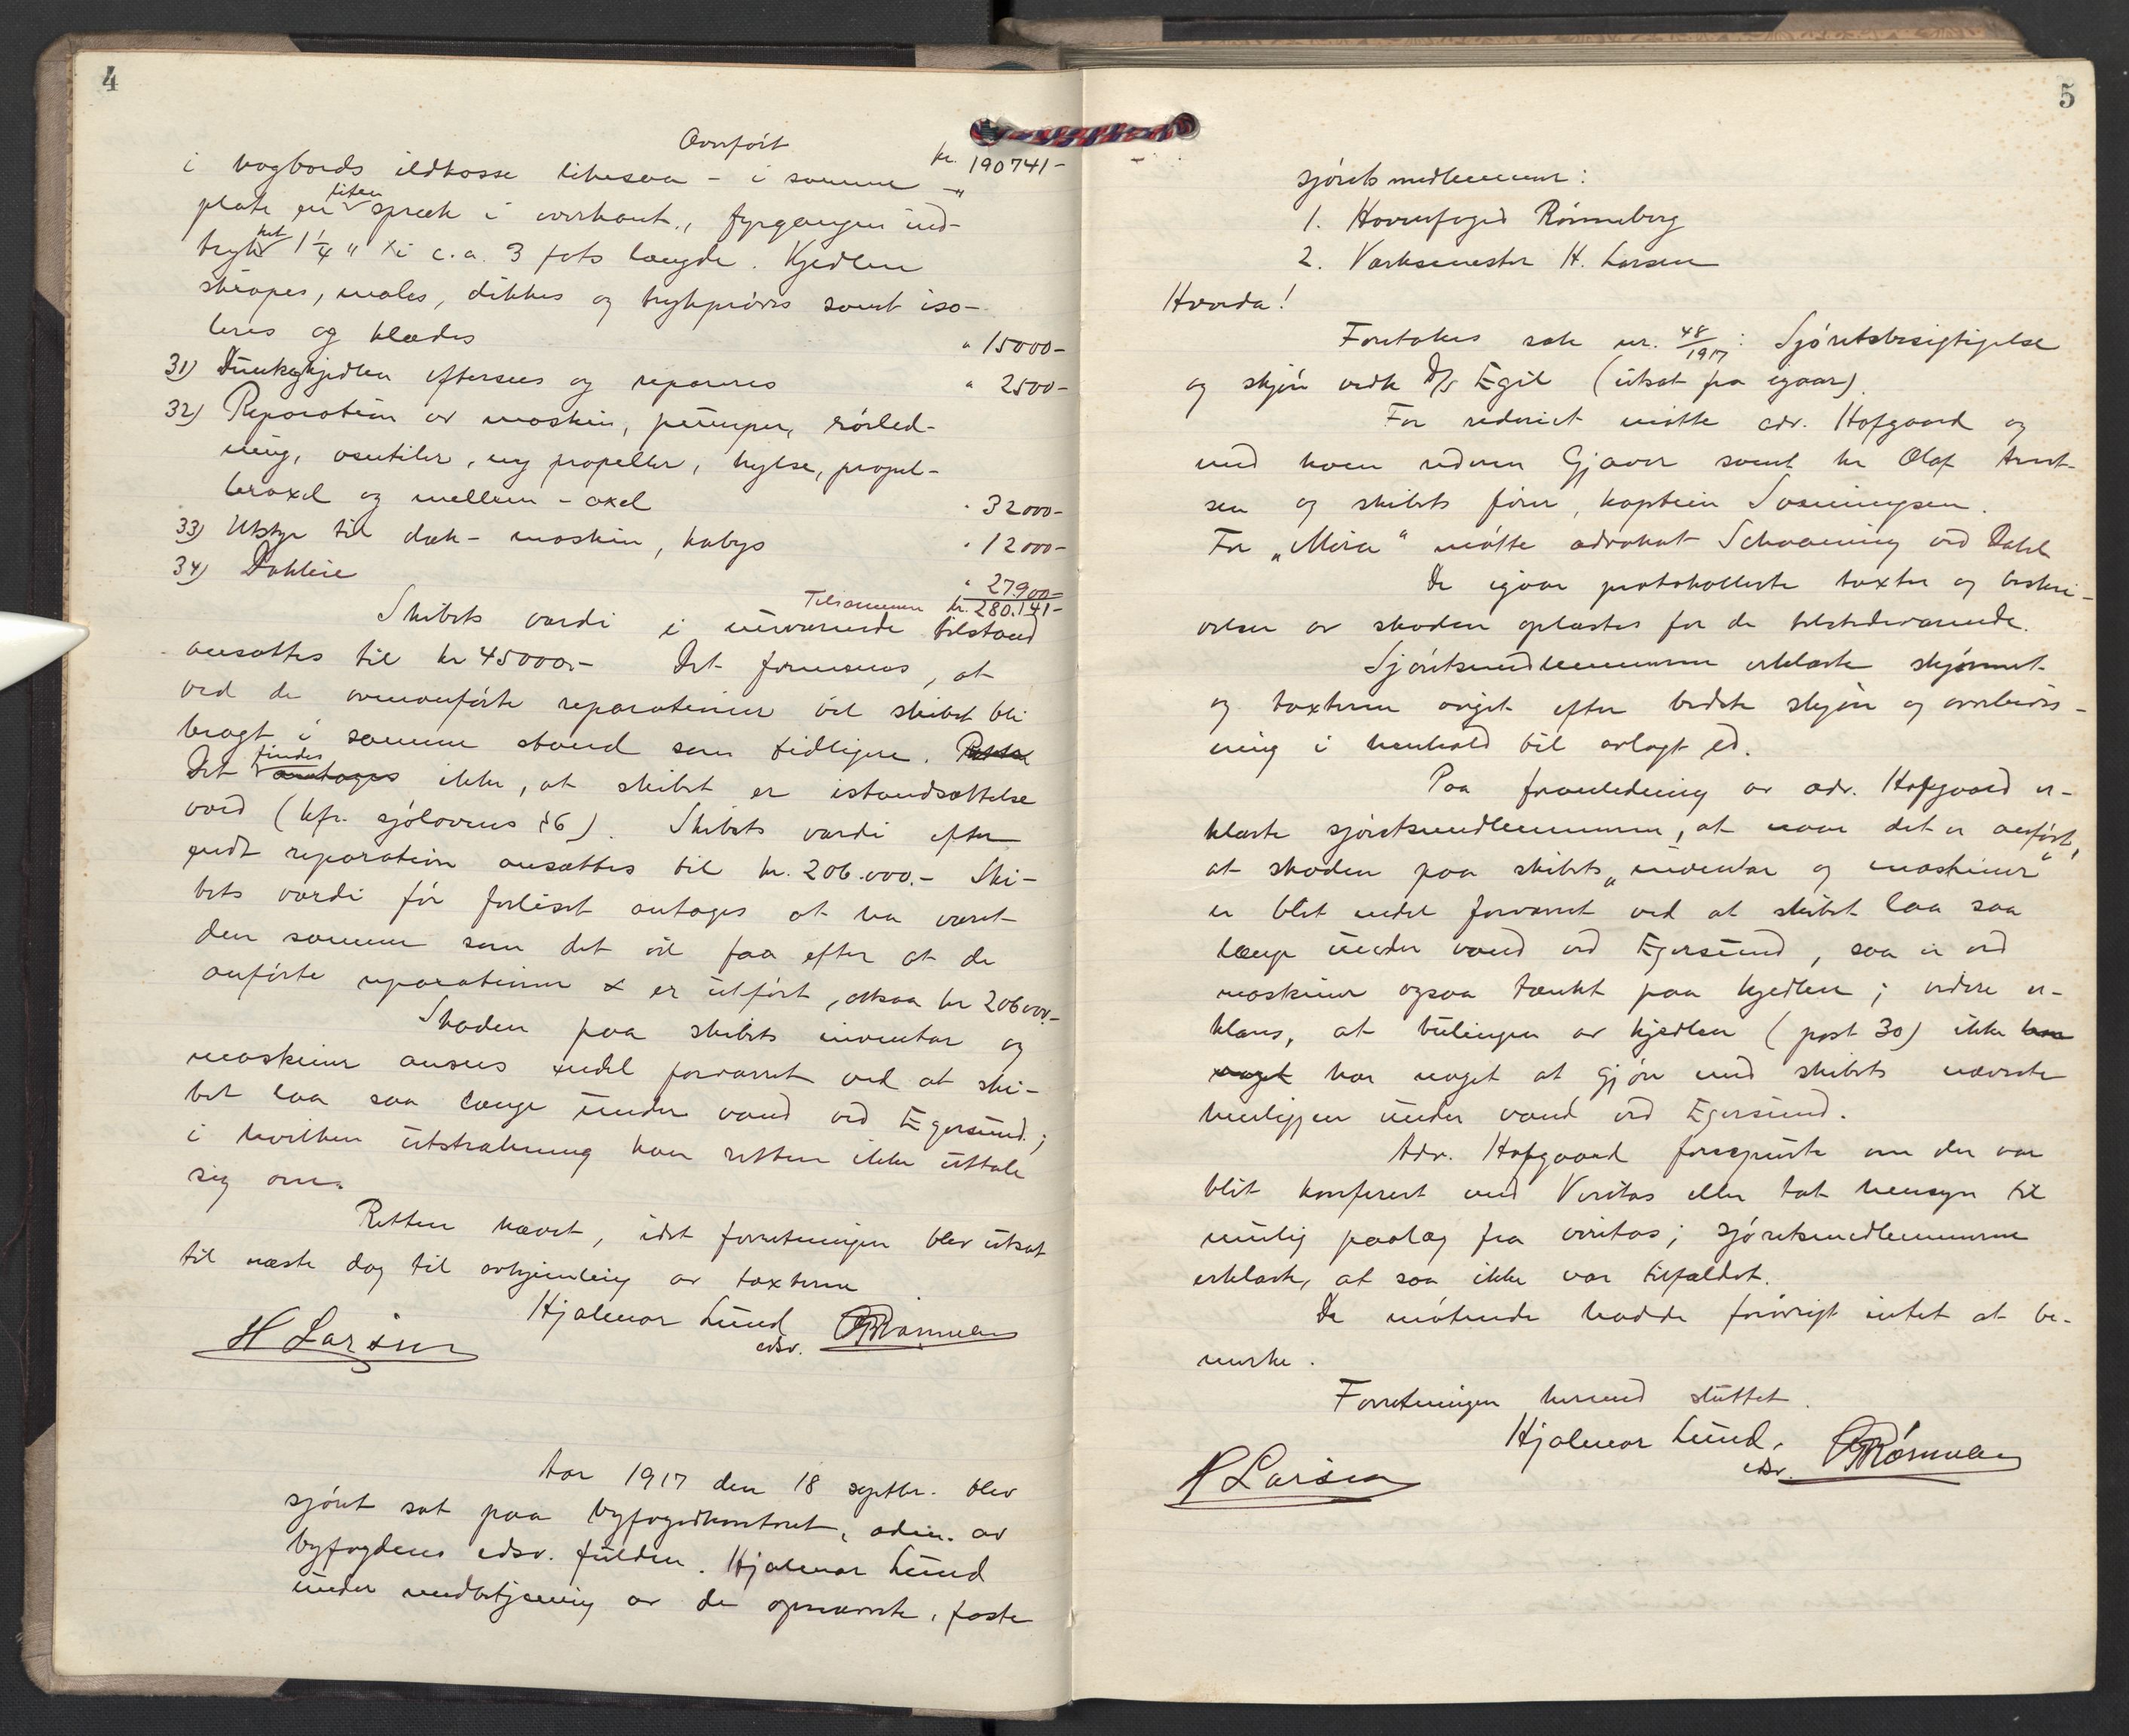 4
Overført kr. 190741-
i bagbords ildkasse likesaa - i samme - "
plate en liten spræk i overkant, fyrgangen ind-
trykket 1 1/4 " i c.a. 3 fots længde. Kjedlen
skrapes, males, dikkes og trykprøves samt iso-
leres og klædes " 15000-
31) Dunkeykjedlen eftersees og repareres " 2500-
32) Reparation av maskin, pumper, rørled-
ning, ventiler, ny propeller, hylse, propel-
leraxel og mellem-axel " 32000-
33) Utstyr til dæk- maskin, kabys " 12000-
34) Dokleie " 27900-
Tilsammen kr. 280.141-
Skibets værdi i nuværende tilstand
ansættes til kr 45000.- Det formenes, at
ved de ovenanførte reparationer vil skibet bli
bragt i samme stand som tidligere.
Det findes antages ikke, at skibet er istandsættelse
værd (kfr. sjølovens §6). Skibets værdi efter
endt reparation ansættes til kr. 206.000.- Ski-
bets værdi før forliset antages at ha været
den samme som det vil faa efter at de
anførte reparationer er utført, altsaa kr 206000.-
Skaden paa skibets inventar og
maskiner ansees endel forværret ved at ski-
bet laa saa længe under vand ved Egersund;
i hvilken utstrækning kan retten ikke uttale
sig om.
Retten hævet, idet forretningen blev utsat
til næste dag til avhjemling av taxterne
H Larsen Hjalmar Lund
edsv.
Aar 1917 den 18 septbr. blev
sjøret sat paa byfogedkontoret, adm. av
byfogdens edsv. fuldm. Hjalmar Lund
under medbetjening av de opnævnte, faste
5
sjøretsmedlemmer:
1. Havnefoged Rønneberg
2. Værksmester H. Larsen
Hvorda!
Foretokes sak nr. 48/1917: Sjøretsbesigtigelse
og skjøn vedk D/S Egil (utsat fra igaar).
For rederiet møtte adv. Hofgaard og
med ham rederen Gjæver samt hr Olaf Arnt-
sen og skibets fører, kaptein Sveningsen.
For "Mira" møtte advokat Schoening ved Dahl
De igaar protokollerte taxter og beskri-
velser av skaden oplæstes for de tilstedeværende.
Sjøretsmedlemmerne erklærte skjønnet
og taxterne avgit efter bedste skjøn og overbevis-
ning i henhold til avlagt ed.
Paa foranledning av adv. Hofgaard er-
klærte sjøretsmedlemmerne, at naar det er anført,
at skaden paa skibets "inventar og maskiner"
er blit endel forværret ved at skibet laa saa
længe under vand ved Egersund, saa er ved
maskiner ogsaa tænkt paa kjedlen; videre er-
klæres, at bulingen av kjedlen (post 30) ikke har
noget har noget at gjøre med skibets nævnte
henliggen under vand ved Egersund.
Adv. Hofgaard forespurte om der var
blit konferert med Veritas eller tat hensyn til
mulig paalæg fra veritas; sjøretsmedlemmerne
erklærte, at saa ikke var tilfældet.
De møtende hadde forøvrigt intet at be-
merke.
Forretningen hermed sluttet.
H Larsen Hjalmar Lund.
edsv.